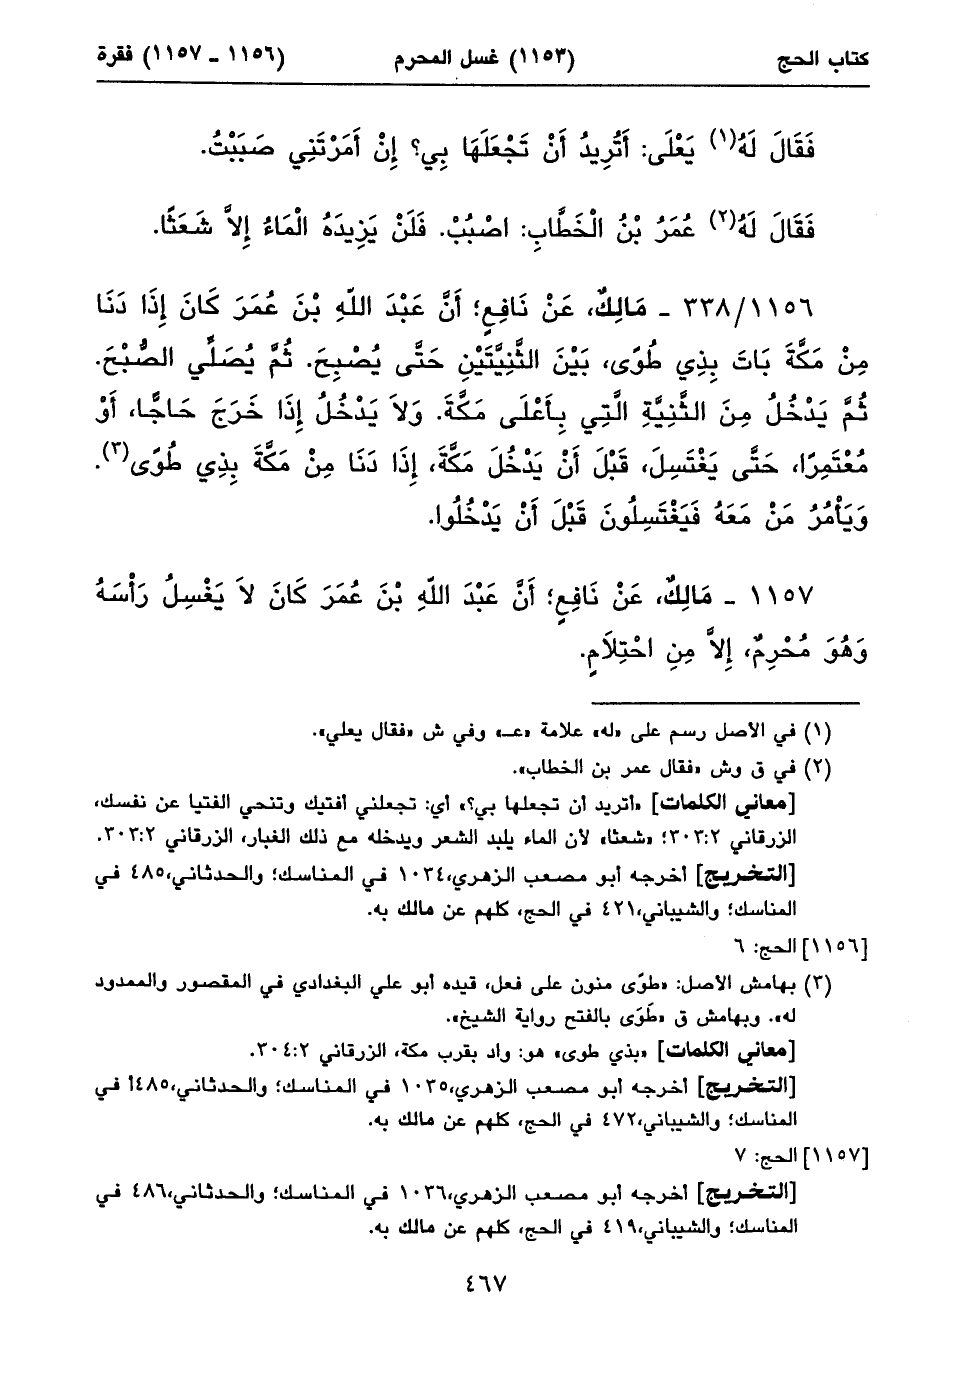 كتاب الحج (١١٥٣) غسل المحرم (١١٥٦ - ١١٥٧) فقرة
فَقَالَ لَهُ(١) يَعْلَى: أَتُرِيدُ أَنْ تَجْعَلَهَا بِي؟ إِنْ أَمَرْتَنِي صَبَبْتُ.
فَقَالَ لَهُ(٢) عُمَرُ بْنُ الْخَطَّابِ: اصْبُبْ. فَلَنْ يَزِيدَهُ الْمَاءُ إِلاَّ شَعَثًا.
٣٣٨/١١٥٦ - مَالِكٌ، عَنْ نَافِعٍ؛ أَنَّ عَبْدَ اللّهِ بْنَ عُمَرَ كَانَ إِذَا دَنَا
مِنْ مَكَّةَ بَاتَ بِذِي طُوًى، بَيْنَ الثَّنِيَّتَيْنِ حَتَّى يُصْبِحَ. ثُمَّ يُصَلِّي الصُّبْحَ.
ثُمَّ يَدْخُلُ مِنَ الثَّنِيَّةِ الَّتِي بِأَعْلَى مَكَّةَ. وَلاَ يَدْخُلُ إِذَا خَرَجَ حَاجًّا، أَوْ
مُعْتَمِرًا، حَتَّى يَغْتَسِلَ، قَبْلَ أَنْ يَدْخُلَ مَكَّةَ، إِذَا دَنَا مِنْ مَكَّةَ بِذِي طُوًى(٣).
وَيَأْمُرُ مَنْ مَعَهُ فَيَغْتَسِلُونَ قَبْلَ أَنْ يَدْخُلُوا.
١١٥٧ - مَالِكٌ، عَنْ نَافِعٍ؛ أَنَّ عَبْدَ اللّهِ بْنَ عُمَرَ كَانَ لاَ يَغْسِلُ رَأْسَهُ
وَهُوَ مُحْرِمٌ، إِلاَّ مِنِ احْتِلاَمٍ.
(١) في الأصل رسم على «له» علامة «عـ» وفي ش «فقال يعلي».
(٢) في ق وش «فقال عمر بن الخطاب».
[معاني الكلمات] «أتريد أن تجعلها بي؟» أي: تجعلني أفتيك وتنحي الفتيا عن نفسك،
الزرقاني ٣٠٣:٢؛ «شعثا» لأن الماء يلبد الشعر ويدخله مع ذلك الغبار، الزرقاني ٣٠٣:٢.
[التخريج] أخرجه أبو مصعب الزهري،١٠٣٤ في المناسك؛ والحدثاني،٤٨٥ في
المناسك؛ والشيباني،٤٢١ في الحج، كلهم عن مالك به.
[١١٥٦] الحج: ٦
(٣) بهامش الأصل: «طوًى منون على فعل، قيده أبو علي البغدادي في المقصور والممدود
له». وبهامش ق «طَوَى بالفتح رواية الشيخ».
[معاني الكلمات] «بذي طوى» هو: واد بقرب مكة، الزرقاني ٣٠٤:٢.
[التخريج] أخرجه أبو مصعب الزهري،١٠٣٥ في المناسك؛ والحدثاني،٤٨٥أ في
المناسك؛ والشيباني،٤٧٢ في الحج، كلهم عن مالك به.
[١١٥٧] الحج: ٧
[التخريج] أخرجه أبو مصعب الزهري،١٠٣٦ في المناسك؛ والحدثاني،٤٨٦ في
المناسك؛ والشيباني،٤١٩ في الحج، كلهم عن مالك به.
٤٦٧